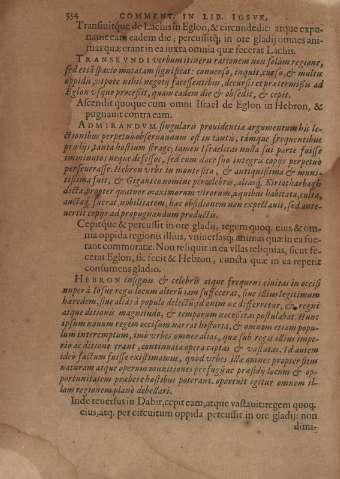 334 COMMENT. IN LIB. IOSVE,
Transiuitque de Lachis in Eglon, & circundedit: atque expu-
nauit eam eadem die, percussitq; in ore gladij omnes ani-
mas quæ erant in ea iuxta omnia quæ fecerat Lachis.
TRANSEVNDI verbum itineris rationem non solam regione,
sed
oppida,
Eglon vsque processit, quam eadem die & obsedit, & cepit.
Ascendit quoque cum omni Israel de Eglon in Hebron, &
pugnauit contra eam.
ADMIRANDVM, singularis prouidentiæ argumentum his le-
ctionibus perpetuò obseruandum est in tantis, támque frequentibus
prælijs, tanta hostium strage, tamen Israelitas nulla sui parte fuisse
imminutos neque defessos, sed eum ducem suo integris copijs perpetuò
perseuerasse. Hebron vrbs in monte sita, & antiquissima & muni-
tissima fuit, & Giganteo nomine præcelebris, aliàsq. Kiriath arbagh
dicta, propter quatuor maximorum virorum, à quibus habitata, culta,
auctaq. fuerat, nobilitatem, hæc obsidionem non expectauit, sed ante-
uertit copijs ad propugnandum productis.
Cepitque & percussit in ore gladij, regem quoq. eius & om-
nia oppida regionis illius, vniuersasq. animas quæ in ea fue-
rant commoratæ. Non reliquit in ea vllas reliquias, sicut fe-
cerat Eglon, sic fecit & Hebron, cuncta quæ in ea reperit
consumens gladio.
HEBRON insignis & celebris atque frequens ciuitas in occisi
nuper à Iosue reguli locum alterum iam suffecerat, siue is illius legitimum
hæredem, siue aliàs à populo delectum id enim ne differretur, & regni
atque ditionis magnitudo, & temporum necessitas postulabat. Hunc
ipsum nouum regem occisum narrat historia, & omnem etiam popu-
lum interemptum, imò vrbes omnes alias, quæ sub regis istius impe-
rio ac ditione erant, continuata opera captas & vastatas. Id autem
ideo factum fuisse existimamus, quod vrbes illæ omnes propter situm
naturam atque operum munitiones perfugij ac præsidij locum & op-
portunitatem præbere hostibus poterant. oportuit igitur omnem il-
lam regionem planè debellari.
Inde reuersus in Dabir, cepit eam, atque vastauit: regem quoq.
eius, atq. per circuitum oppida percussit in ore gladij: non
dimi-